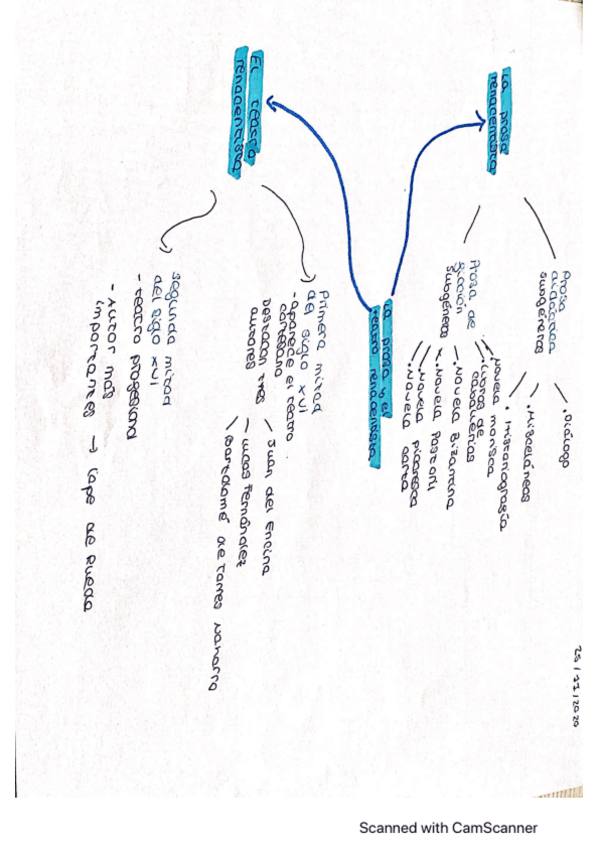 25/11/2020
La prosa y el
teatro renacentista
La prosa
renacentista
Prosa
didáctica
subgéneros
. Diálogo
. Misceláneas
. Historiografía
Prosa de
ficción
subgéneros
. Novela morisca
. Libros de
caballerías
. Novela Bizantina
. Novela Pastoril
. Novela picaresca
. Novela corta
El teatro
renacentista
Primera mitad
del siglo XVI
- aparece el teatro
cortesano
Destacan tres
autores
Juan del Encina
Lucas Fernández
Bartolomé de Torres Naharro
Segunda mitad
del siglo XVI
- teatro profesional
- Autor más
importantes → Lope de Rueda
Scanned with CamScanner